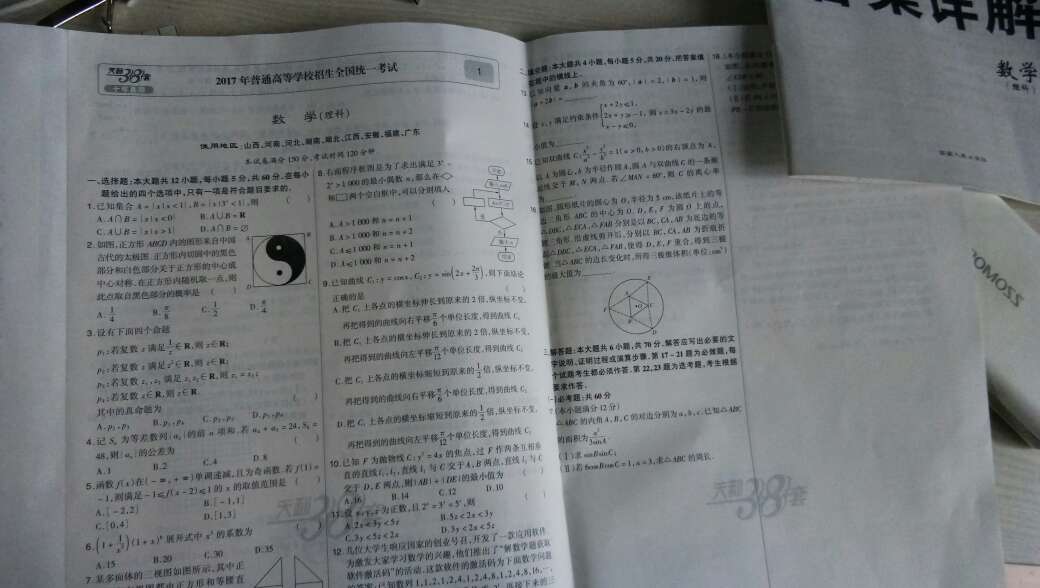 天利38套
2017年普通高等学校招生全国统一考试
1
数 学(理科)
使用地区:山西、河南、河北、湖南、湖北、江西、安徽、福建、广东
本试卷满分150分,考试时间120分钟
一、选择题:本大题共12小题,每小题5分,共60分.在每小
题给出的四个选项中,只有一项是符合题目要求的.
1.已知集合A={x|x<1},B={x|3ˣ<1},则 ( )
A.A∩B={x|x<0} B.A∪B=R
C.A∪B={x|x>1} D.A∩B=∅
2.如图,正方形ABCD内的图形来自中国
古代的太极图.正方形内切圆中的黑色
部分和白色部分关于正方形的中心成
中心对称.在正方形内随机取一点,则
此点取自黑色部分的概率是 ( )
A.1/4 B.π/8 C.1/2 D.π/4
3.设有下面四个命题
p₁:若复数z满足1/z∈R,则z∈R;
p₂:若复数z满足z²∈R,则z∈R;
p₃:若复数z₁,z₂满足z₁z₂∈R,则z₁=z̄₂;
p₄:若复数z∈R,则z̄∈R.
其中的真命题为 ( )
A.p₁,p₃ B.p₁,p₄ C.p₂,p₃ D.p₂,p₄
4.记Sₙ为等差数列{aₙ}的前n项和.若a₄+a₅=24,S₆=
48,则{aₙ}的公差为 ( )
A.1 B.2 C.4 D.8
5.函数f(x)在(-∞,+∞)单调递减,且为奇函数.若f(1)=
-1,则满足-1≤f(x-2)≤1的x的取值范围是 ( )
A.[-2,2] B.[-1,1]
C.[0,4] D.[1,3]
6.(1+1/x²)(1+x)⁶展开式中x²的系数为
A.15 B.20 C.30 D.35
7.某多面体的三视图如图所示,其中正
8.右面程序框图是为了求出满足3ⁿ-
2ⁿ>1 000的最小偶数n,那么在
和 两个空白框中,可以分别填入
( )
A.A>1 000和n=n+1
B.A>1 000和n=n+2
C.A≤1 000和n=n+1
D.A≤1 000和n=n+2
9.已知曲线C₁:y=cosx,C₂:y=sin(2x+2π/3),则下面结论
正确的是 ( )
A.把C₁上各点的横坐标伸长到原来的2倍,纵坐标不变,
再把得到的曲线向右平移π/6个单位长度,得到曲线C₂
B.把C₁上各点的横坐标伸长到原来的2倍,纵坐标不变,
再把得到的曲线向左平移π/12个单位长度,得到曲线C₂
C.把C₁上各点的横坐标缩短到原来的1/2倍,纵坐标不变,
再把得到的曲线向右平移π/6个单位长度,得到曲线C₂
D.把C₁上各点的横坐标缩短到原来的1/2倍,纵坐标不变,
再把得到的曲线向左平移π/12个单位长度,得到曲线C₂
10.已知F为抛物线C:y²=4x的焦点,过F作两条互相垂
直的直线l₁,l₂,直线l₁与C交于A,B两点,直线l₂与C
交于D,E两点,则|AB|+|DE|的最小值为 ( )
A.16 B.14 C.12 D.10
11.设x,y,z为正数,且2ˣ=3ʸ=5ᶻ,则 ( )
A.2x<3y<5z B.5z<2x<3y
C.3y<5z<2x D.3y<2x<5z
12.几位大学生响应国家的创业号召,开发了一款应用软件.
为激发大家学习数学的兴趣,他们推出了"解数学题获取
软件激活码"的活动.这款软件的激活码为下面数学问题
的答案:已知数列1,1,2,1,2,4,1,2,4,8,1,2,4,8,16,…,
填空题:本大题共4小题,每小题5分,共20分.把答案填
13.已知向量a,b的夹角为60°,|a|=2,|b|=1,则
a+2b|=
14.设x,y满足约束条件{x+2y≤1, 2x+y≥-1, x-y≤0, 则z=3x-2y的最
小值为
15.已知双曲线C:x²/a²-y²/b²=1(a>0,b>0)的右顶点为A,
以A为圆心,b为半径作圆A,圆A与双曲线C的一条渐
近线交于M,N两点.若∠MAN=60°,则C的离心率
为
16.如图,圆形纸片的圆心为O,半径为5 cm,该纸片上的等
边三角形ABC的中心为O.D,E,F为圆O上的点,
△DBC,△ECA,△FAB分别是以BC,CA,AB为底边的等
腰三角形.沿虚线剪开后,分别以BC,CA,AB为折痕折
起△DBC,△ECA,△FAB,使得D,E,F重合,得到三棱
锥.当△ABC的边长变化时,所得三棱锥体积(单位:cm³)
的最大值为
三、解答题:本大题共6小题,共70分.解答应写出必要的文
字说明、证明过程或演算步骤.第17~21题为必做题,每
个试题考生都必须作答.第22,23题为选考题,考生根据
要求作答.
必考题:共60分
(本小题满分12分)
△ABC的内角A,B,C的对边分别为a,b,c.已知△ABC
的面积为a²/3sinA.
(Ⅰ)求sinBsinC;
(Ⅱ)若6cosBcosC=1,a=3,求△ABC的周长.
天利38套
天利38套
18.
答案详解
数学
(理科)